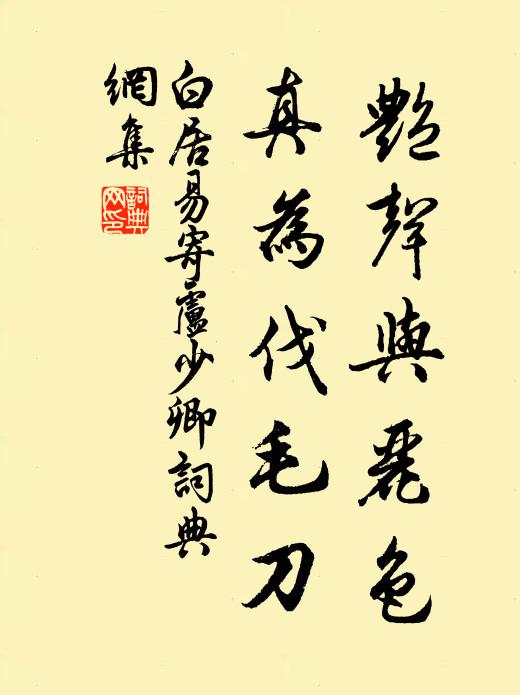 艷聲與麗色
真為伐毛刀
白居易寄盧少卿詞典
網集
詞典網印